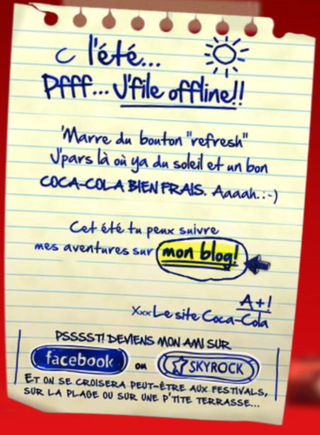 C l'été...
Pfff... J'file offline!!
'Marre du bouton "refresh"
J'pars là où ya du soleil et un bon
COCA-COLA BIEN FRAIS. Aaaah.:-)
Cet été tu peux suivre
mes aventures sur mon blog!
A+!
Xxx Le site Coca-Cola
PSSSST! DEVIENS MON AMI SUR
facebook ou SKYROCK
ET ON SE CROISERA PEUT-ÊTRE AUX FESTIVALS,
SUR LA PLAGE OU SUR UNE P'TITE TERRASSE...